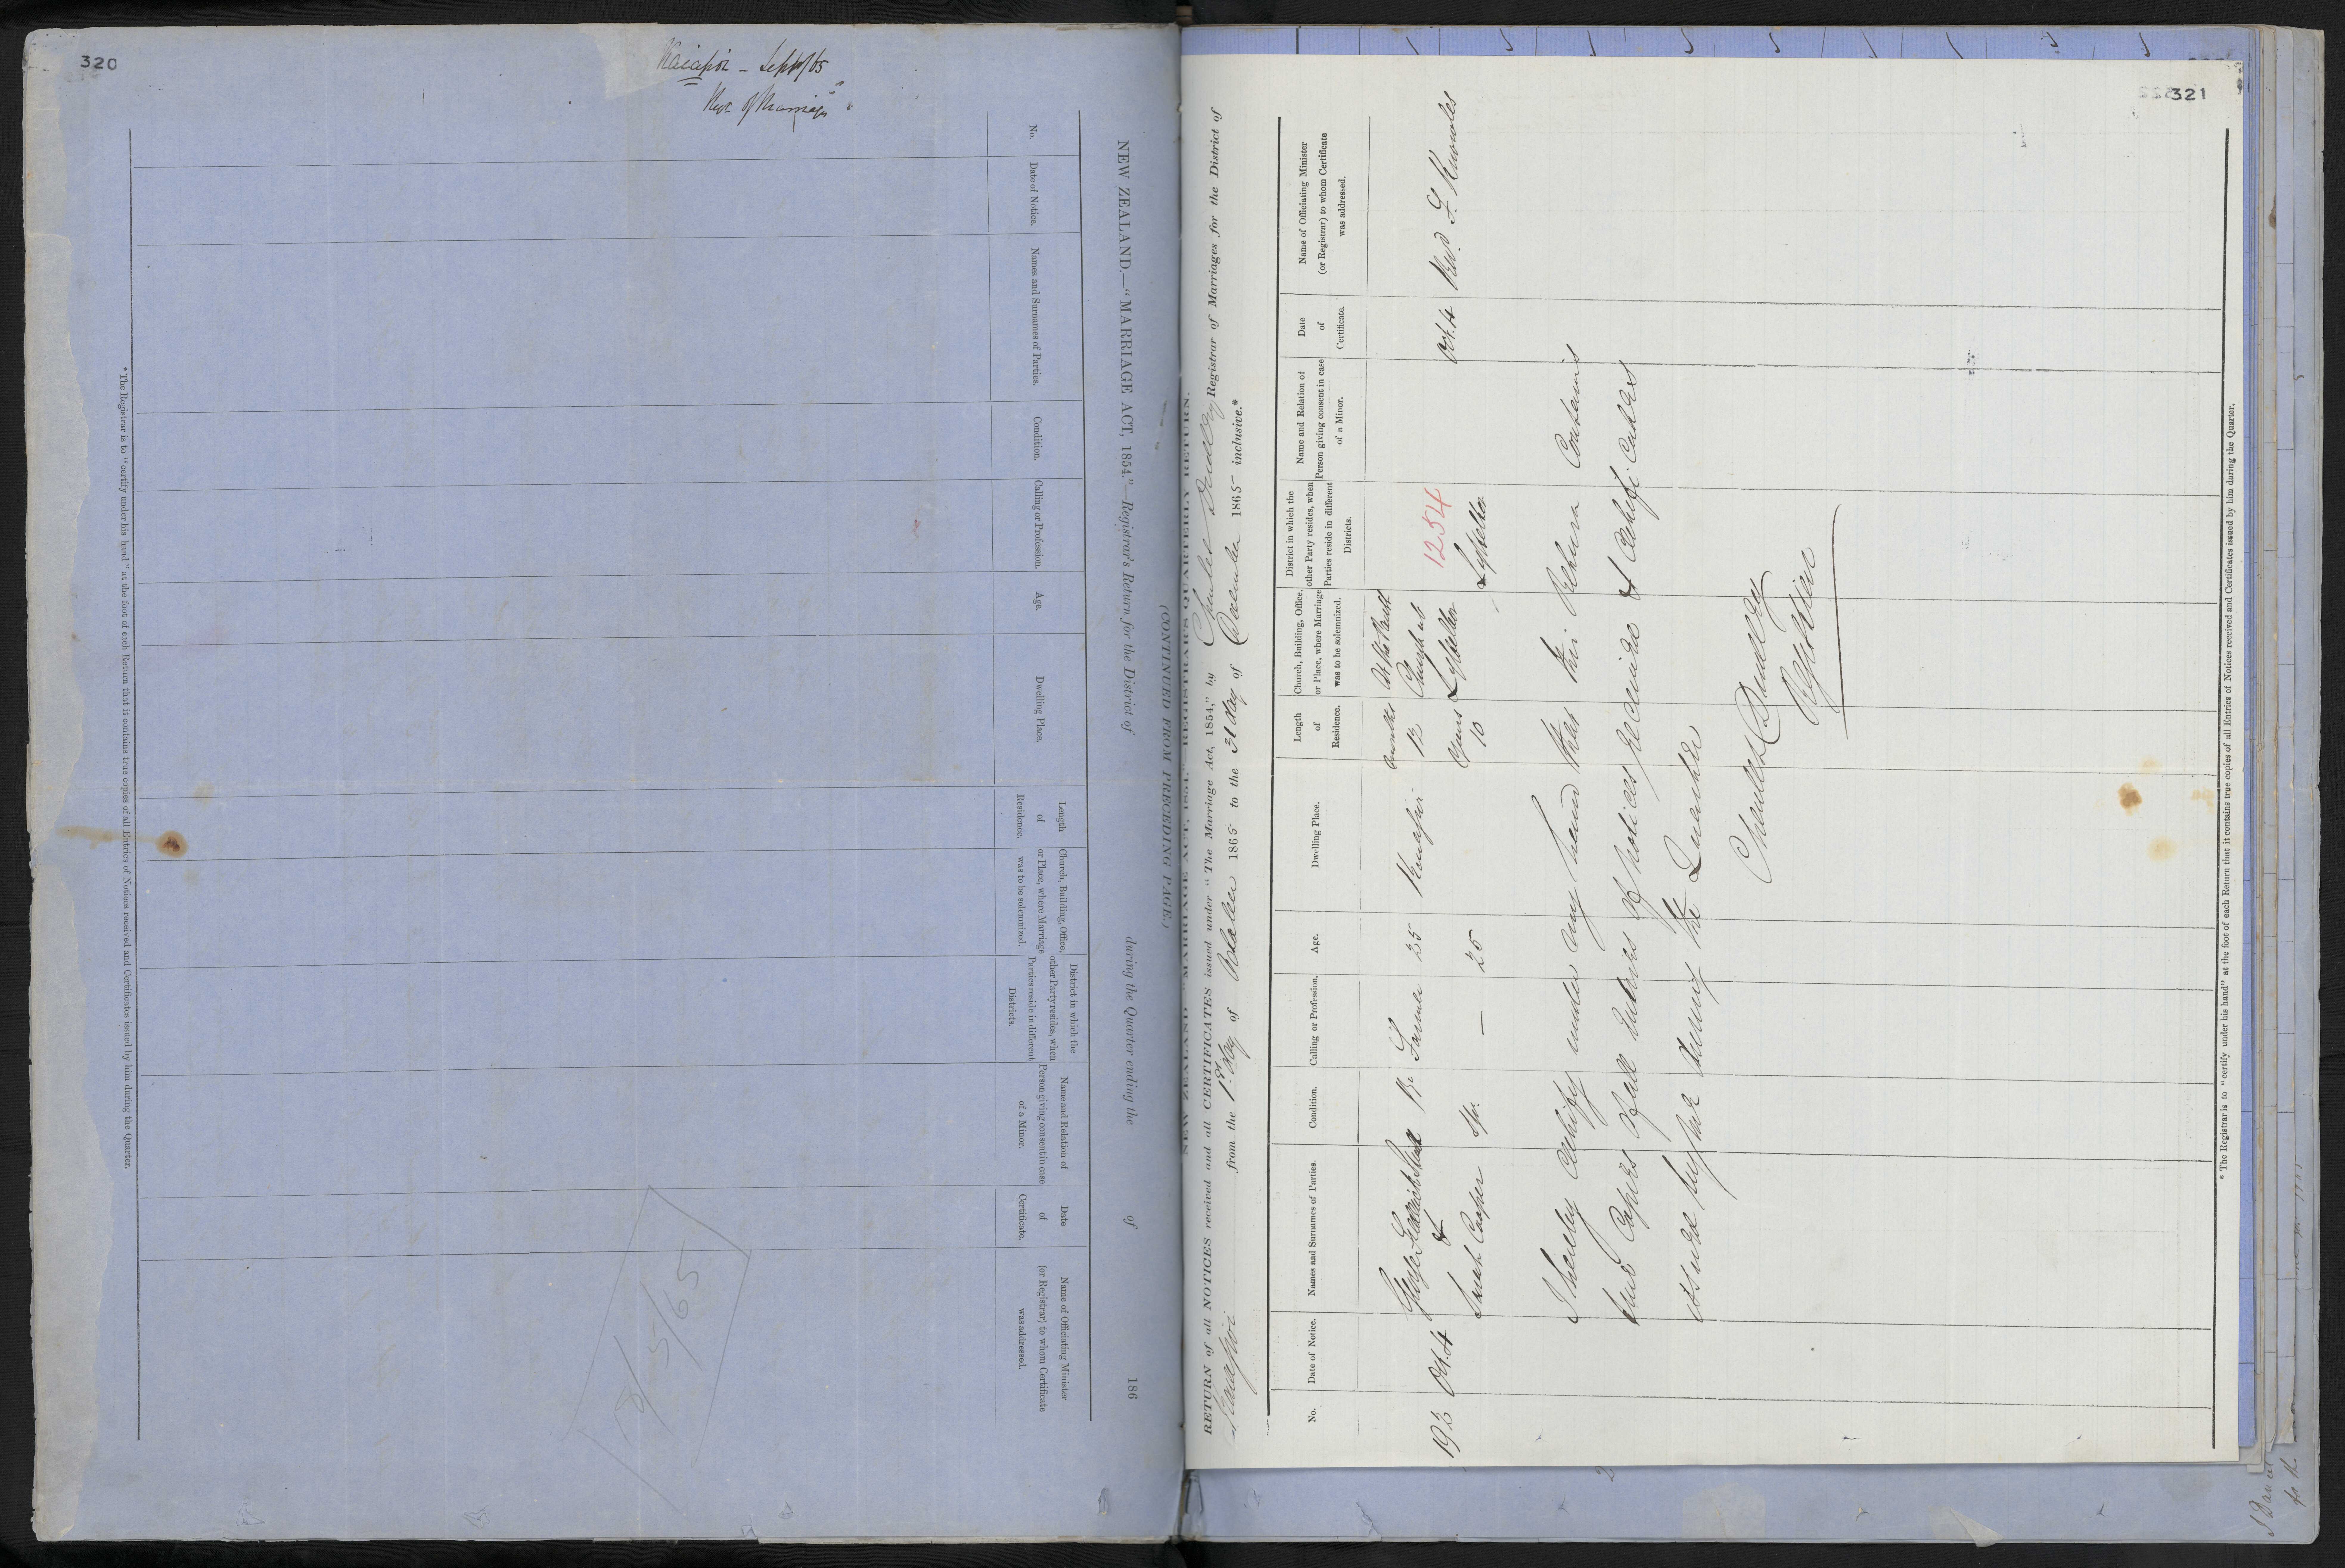 320
Kaiapoi - Sept/65
NEW ZEALAND.—"MARRIAGE ACT, 1854."—Registrar's Return for the District of during the Quarter ending the of 186
(CONTINUED FROM PRECEDING PAGE.)
No.
Date of Notice.
Names and Surnames of Parties.
Condition.
Calling or Profession.
Age.
Dwelling Place.
Length
of
Residence.
Church, Building, Office,
or Place, where Marriage
was to be solemnized.
District in which the
other Party resides, when
Parties reside in different
Districts.
Name and Relation of
Person giving consent in case
of a Minor.
Date
of
Certificate.
Name of Officiating Minister
(or Registrar) to whom Certificate
was addressed.
5/65
* The Registrar is to "certify under his hand" at the foot of each Return that it contains true copies of all Entries of Notices received and Certificates issued by him during the Quarter.
321
NEW ZEALAND "MARRIAGE ACT, 1854." REGISTRAR'S QUARTERLY RETURN.
RETURN of all NOTICES received and all CERTIFICATES issued under "The Marriage Act, 1854," by Charles Dudley Registrar of Marriages for the District of
Kaiapoi from the 1st day of October 1865 to the 31 day of December 1865 inclusive.*
No.
Date of Notice.
Names and Surnames of Parties.
Condition.
Calling or Profession.
Age.
Dwelling Place.
Length
of
Residence.
Church, Building, Office,
or Place, where Marriage
was to be solemnized.
District in which the
other Party resides, when
Parties reside in different
Districts.
Name and Relation of
Person giving consent in case
of a Minor.
Date
of
Certificate.
Name of Officiating Minister
(or Registrar) to whom Certificate
was addressed.
193 Oct. 4 George Farmer 25 Kaiapoi months 12 Church at Lyttelton 1254 Oct. 4 Revd. F. Knowles
&
Sarah Cooper Sp. — 25 years 10 Lyttelton
I hereby certify under my hand that this Return Contains
true Copies of all Entries of Notices received & Certif:cates
issued by me during the Quarter
Charles Dudley
Registrar
* The Registrar is to "certify under his hand" at the foot of each Return that it contains true copies of all Entries of Notices received and Certificates issued by him during the Quarter.